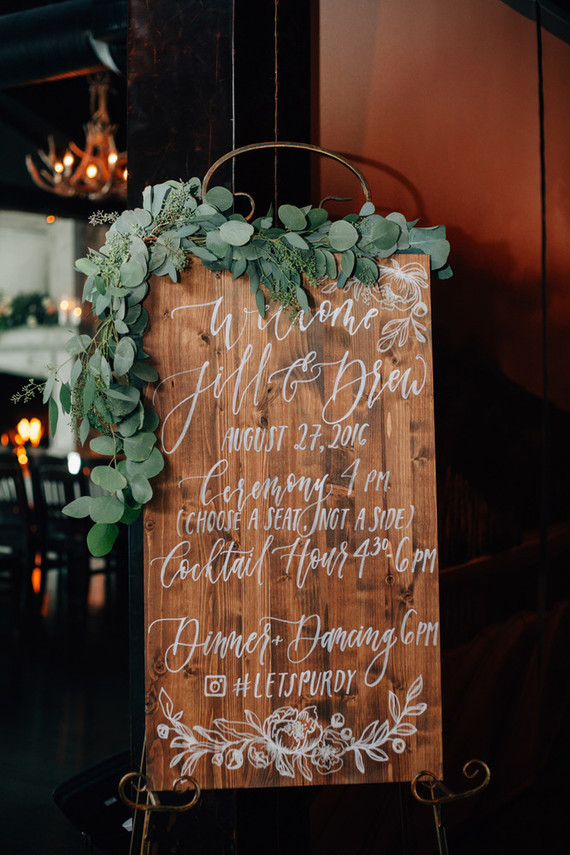 Welcome
Jill & Drew
AUGUST 27, 2016
Ceremony 4 PM
(CHOOSE A SEAT, NOT A SIDE)
Cocktail Hour 4³⁰ 6PM
Dinner + Dancing 6PM
#LETSPURDY